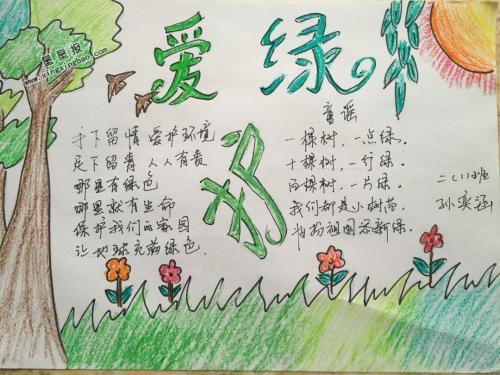 星星报
www.xingxingbao.com
爱绿
护
手下留情 爱护环境
足下留青 人人有责
哪里有绿色
哪里就有生命
保护我们的家园
让地球充满绿色.
童谣
一棵树，一点绿.
十棵树，一行绿.
百棵树，一片绿.
我们都是小树苗.
装扮祖国添新绿.
二(1)班